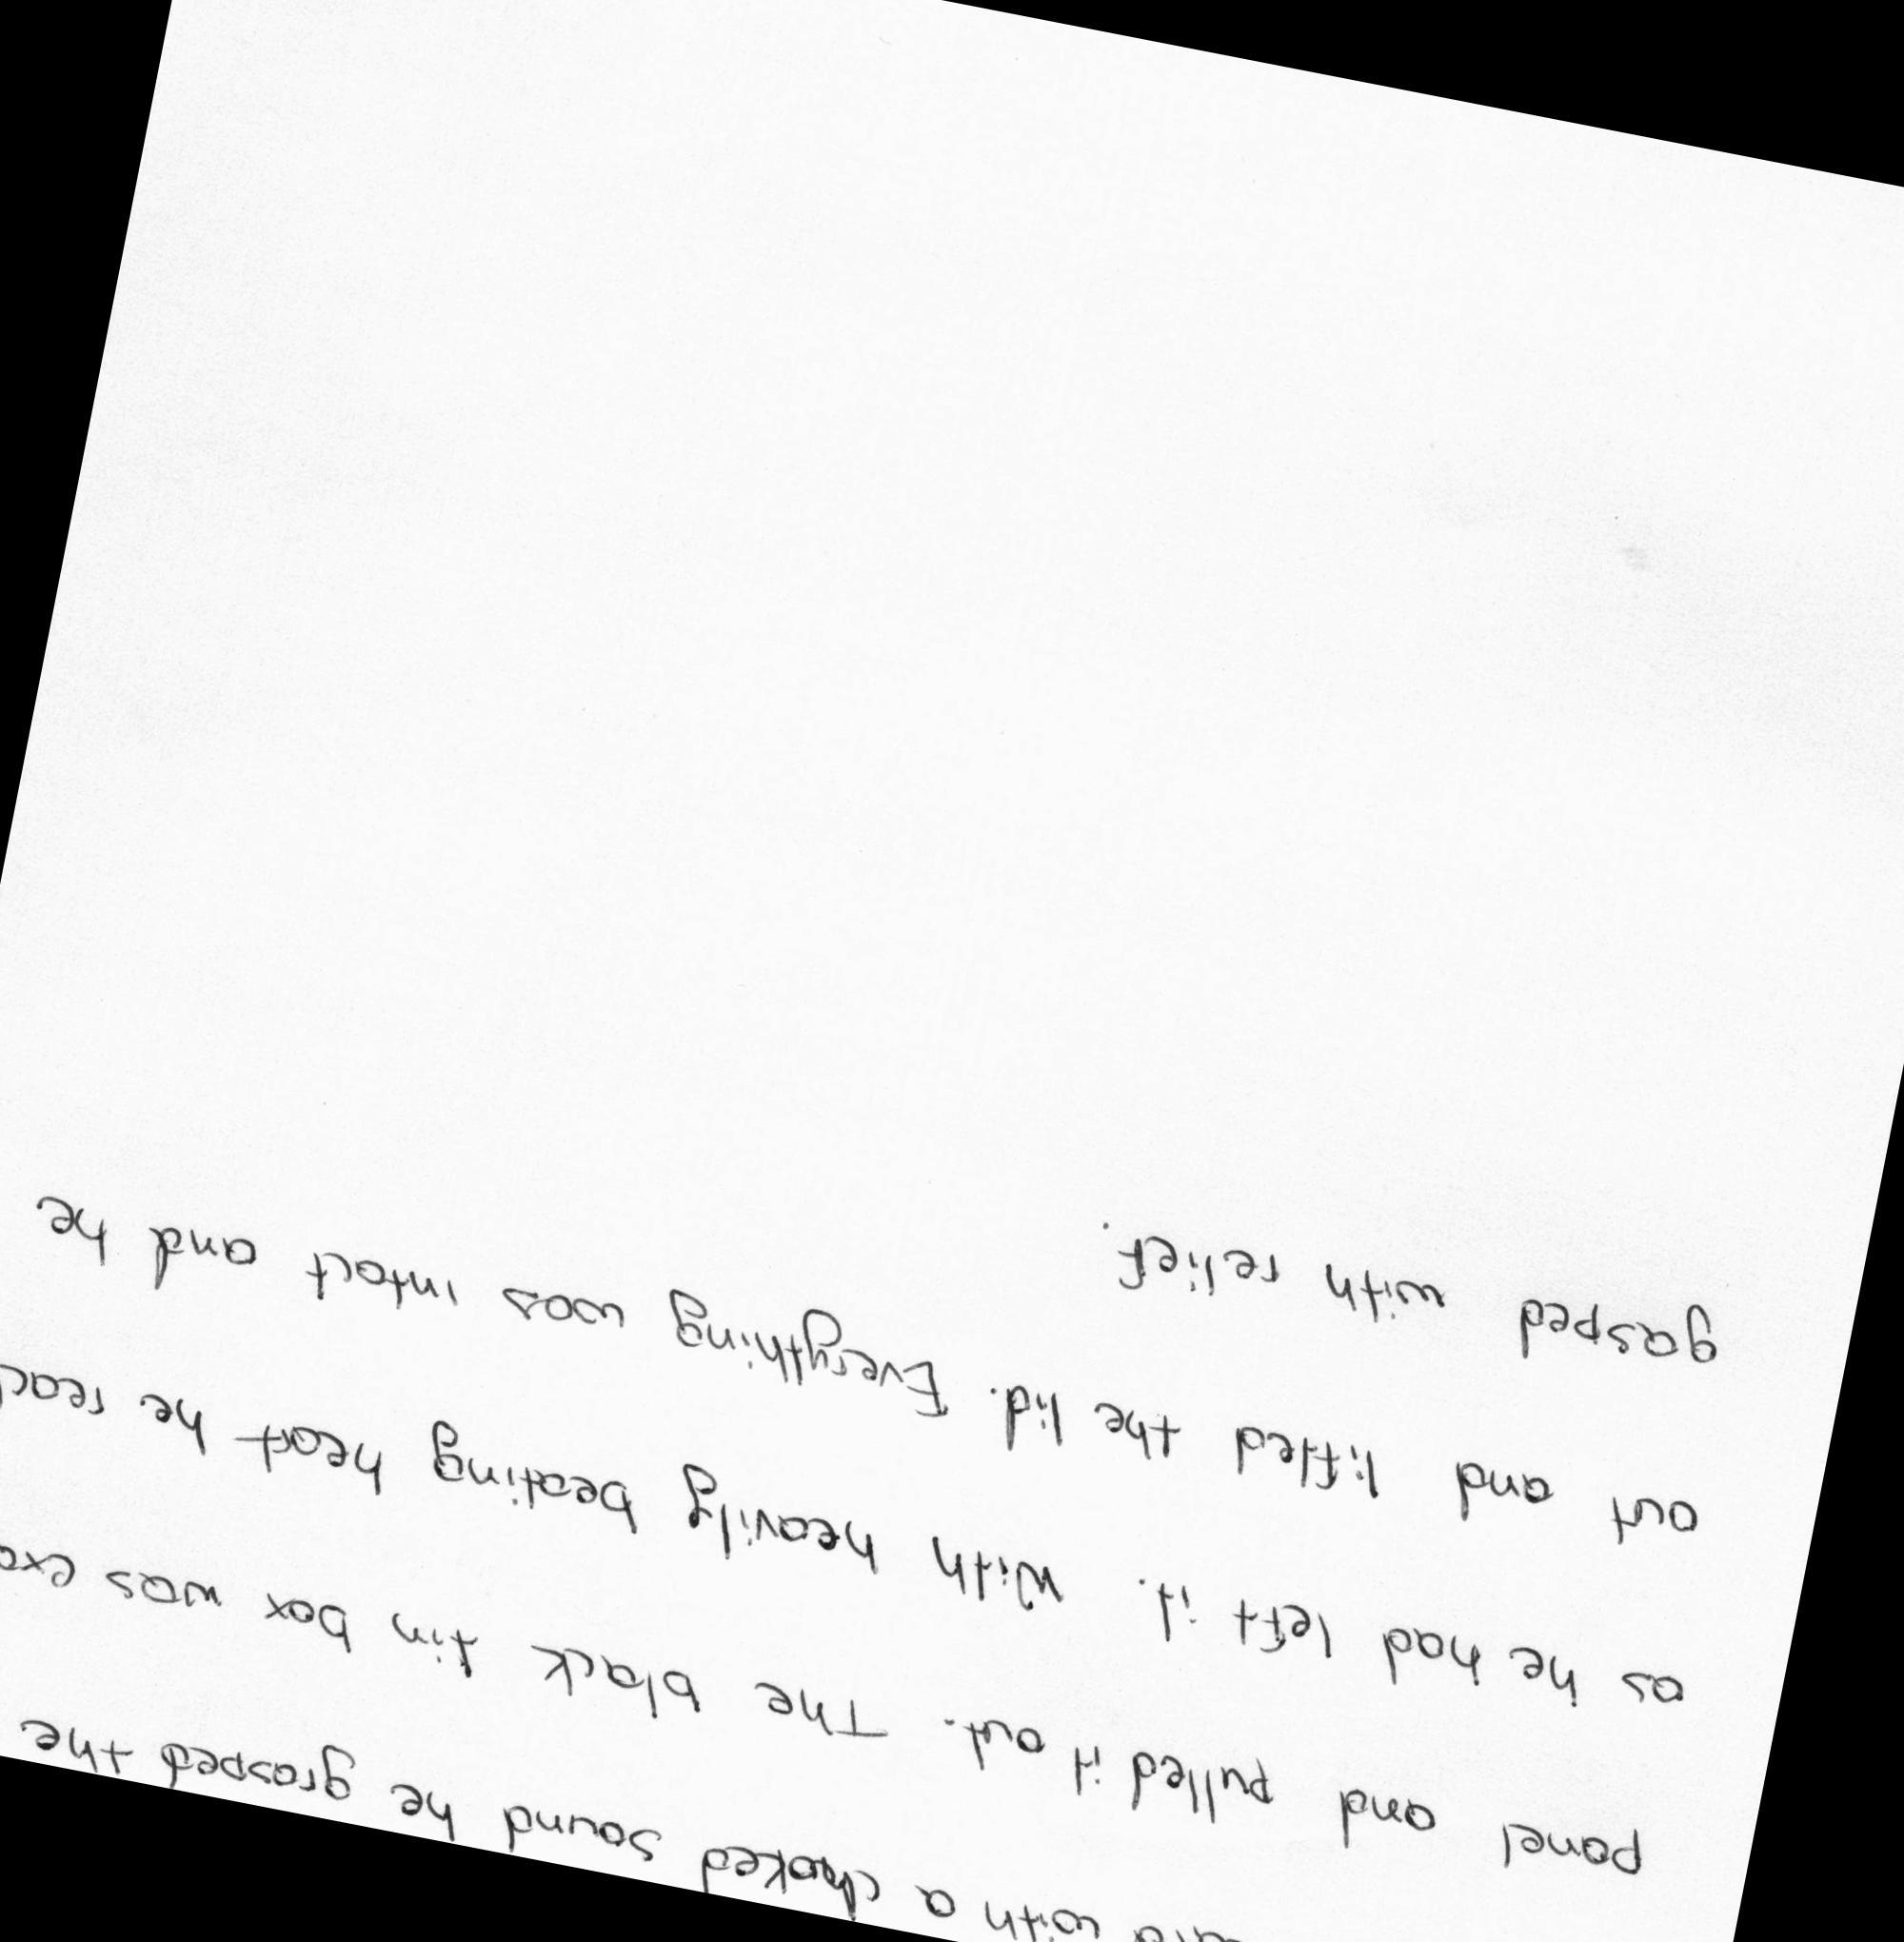 with a choked sound he grasped the
panel and pulled it out. The black tin box was
as he had left it. With heavily beating heart he
out and lifted the lid. Everything was intact and he
gasped with relief.